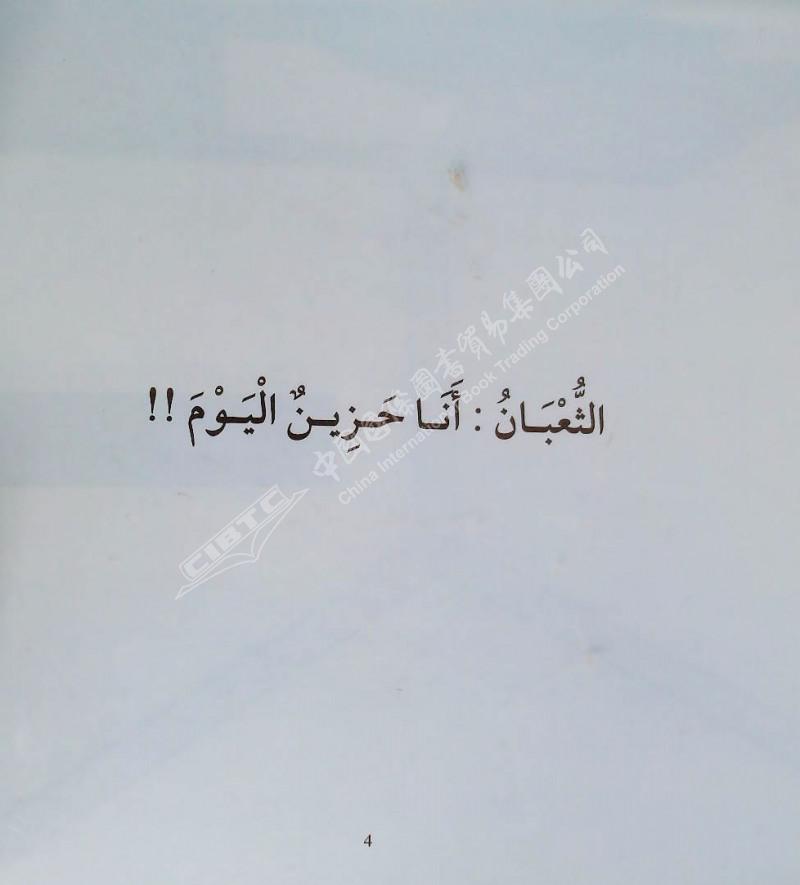 中国国际图书贸易集团公司
China International Book Trading Corporation
الثُّعْبَانُ : أَنَا حَزِينٌ الْيَوْمَ !!
CIBTC
4